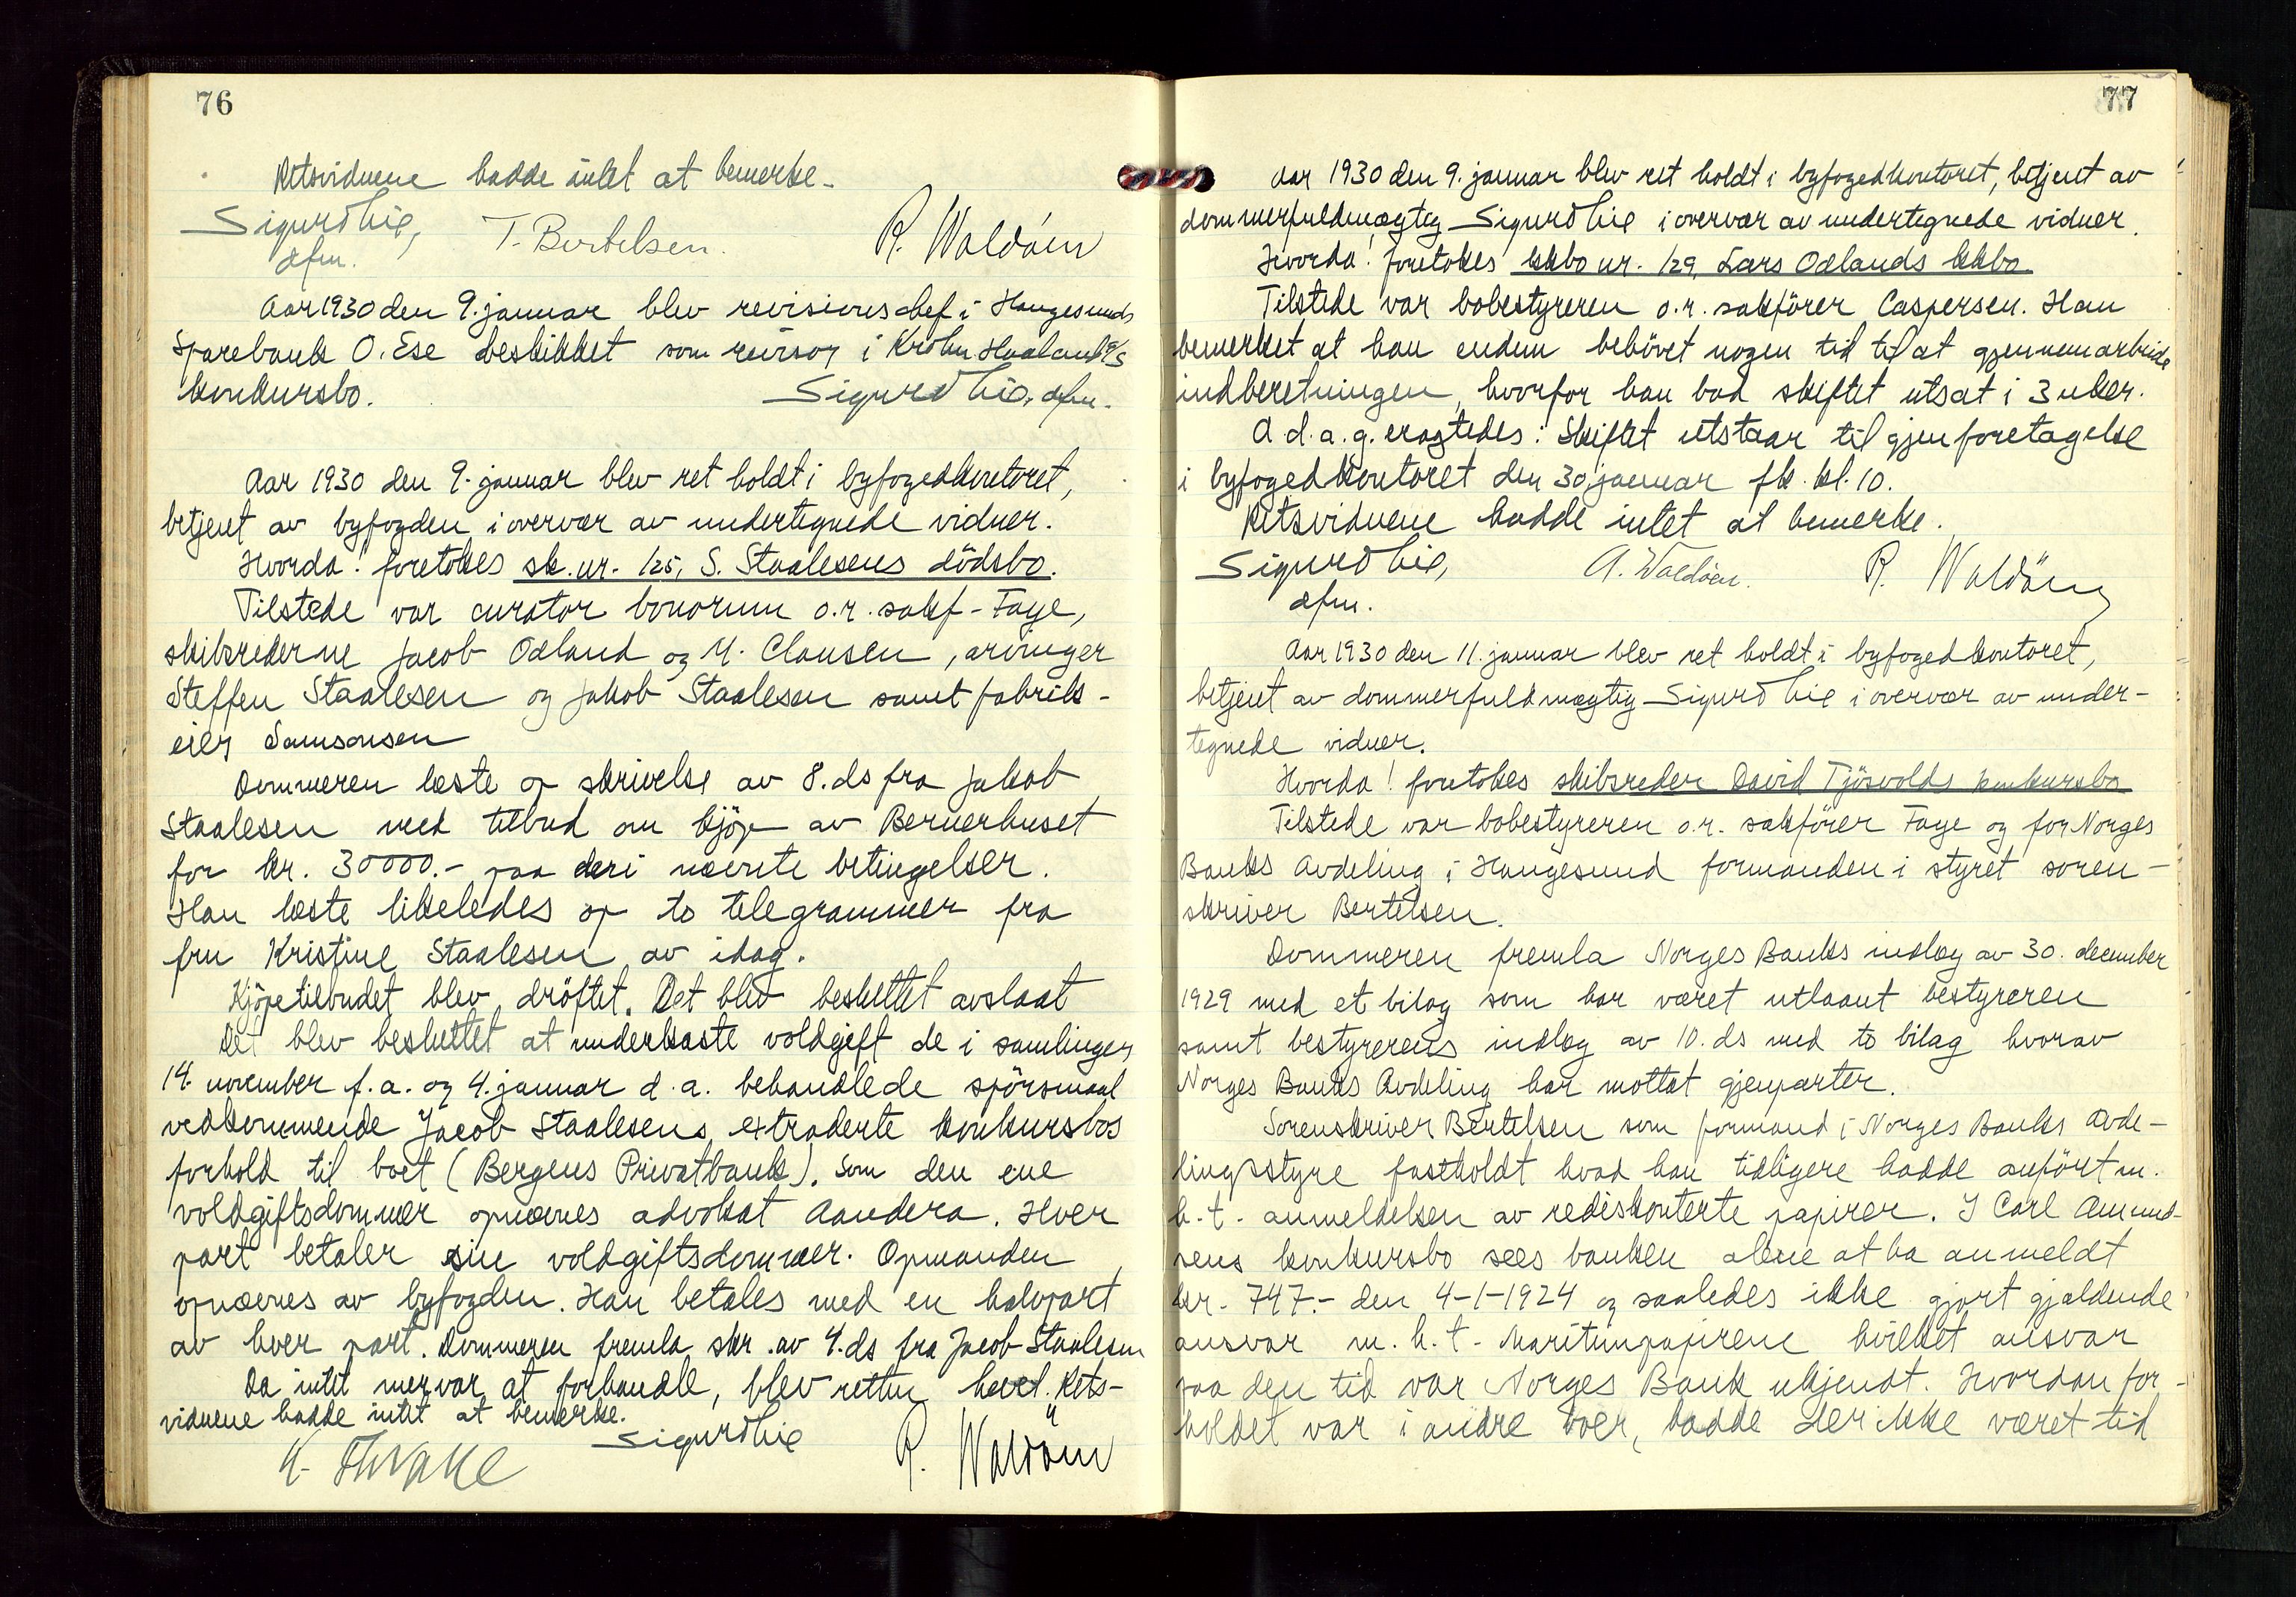 76
Retsvidnene hadde intet at bemerke.
Sigurd Lie, T. Bertelsen. R. Waldöen
dfm.
Aar 1930 den 9. januar blev revisionschef i Haugesunds
Sparebank O. Ese beskikket som revisor i Krohn Haaland A/S
konkursbo. Sigurd Lie, dfm.
Aar 1930 den 9. januar blev ret holdt i byfogedkontoret,
betjent av byfogden i overvær av undertegnede vidner.
Hvorda! foretokes sk. nr. 125, S. Staalesens dödsbo.
Tilstede var curator bonorum o.r. sakf. Faye,
skibsrederne Jacob Odland og M. Clausen, arvinger
Steffen Staalesen og Jakob Staalesen samt fabrik-
eier Samsonsen
Dommeren læste op skrivelse av 8. ds fra Jakob
Staalesen med tilbud om kjöp av Bernerhuset
for kr. 30000.- paa deri nævnte betingelser.
Han læste likeledes op to telegrammer fra
fru Kristine Staalesen av idag.
Kjöpetilbudet blev dröftet. Det blev besluttet avslaat
Det blev besluttet at underkaste voldgift de i samlinger
14. november f.a. og 4. januar d.a. behandlede spörsmaal
vedkommende Jacob Staalesens extraderte konkursbos
forhold til boet (Bergens Privatbank). Som den ene
voldgiftsdommer opnævnes advokat Aandera. Hver
part betaler sin voldgiftsdommer. Opmanden
opnævnes av byfogden. Han betales med en halvpart
av hver part. Dommeren fremla skr. av 4. ds fra Jacob Staalesen
Da intet mer var at forhandle, blev retten hævet. Rets-
vidnene hadde intet at bemerke.
Sigurd Lie R. Waldöen
77
Aar 1930 den 9. januar blev ret holdt i byfogedkontoret, betjent av
dommerfuldmægtig Sigurd Lie i overvær av undertegnede vidner.
Hvorda! foretokes kkbo nr. 129, Lars Odlands kkbo.
Tilstede var bobestyreren o.r. sakförer Caspersen. Han
bemerket at han endnu behövet nogen tid til at gjennemarbeide
indberetningen, hvorfor han bad skiftet utsat i 3 uker.
A.d.a.g. eragtedes: Skiftet utstaar til gjenforetagelse
i byfogedkontoret den 30. januar fk. kl. 10.
Retsvidnene hadde intet at bemerke.
Sigurd Lie, A. Waldöen. R. Waldöen
dfm.
Aar 1930 den 11. januar blev ret holdt i byfogedkontoret,
betjent av dommerfuldmægtig Sigurd Lie i overvær av under-
tegnede vidner.
Hvorda! foretokes skibsreder David Tjösvolds konkursbo
Tilstede var bobestyreren o.r. sakförer Faye og for Norges
Banks Avdeling i Haugesund formanden i styret soren-
skriver Bertelsen.
Dommeren fremla Norges Banks indlæg av 30. december
1929 med et bilag som har været utlaant bestyreren
samt bestyrerens indlæg av 10. ds med to bilag hvorav
Norges Banks Avdeling har mottat gjenparter.
Sorenskriver Bertelsen som formand i Norges Banks Avde-
lingsstyre fastholdt hvad han tidligere hadde anfört m.
h.t. anmeldelsen av rediskonterte papirer. I Carl Amund-
sens konkursbo sees banken alene at ha anmeldt
kr. 747.- den 4-1-1924 og saaledes ikke gjort gjældende
ansvar m.h.t. Maritimpapirene hvilket ansvar
paa den tid var Norges Bank ukjendt. Hvordan for-
holdet var i andre boer, hadde der ikke været tid